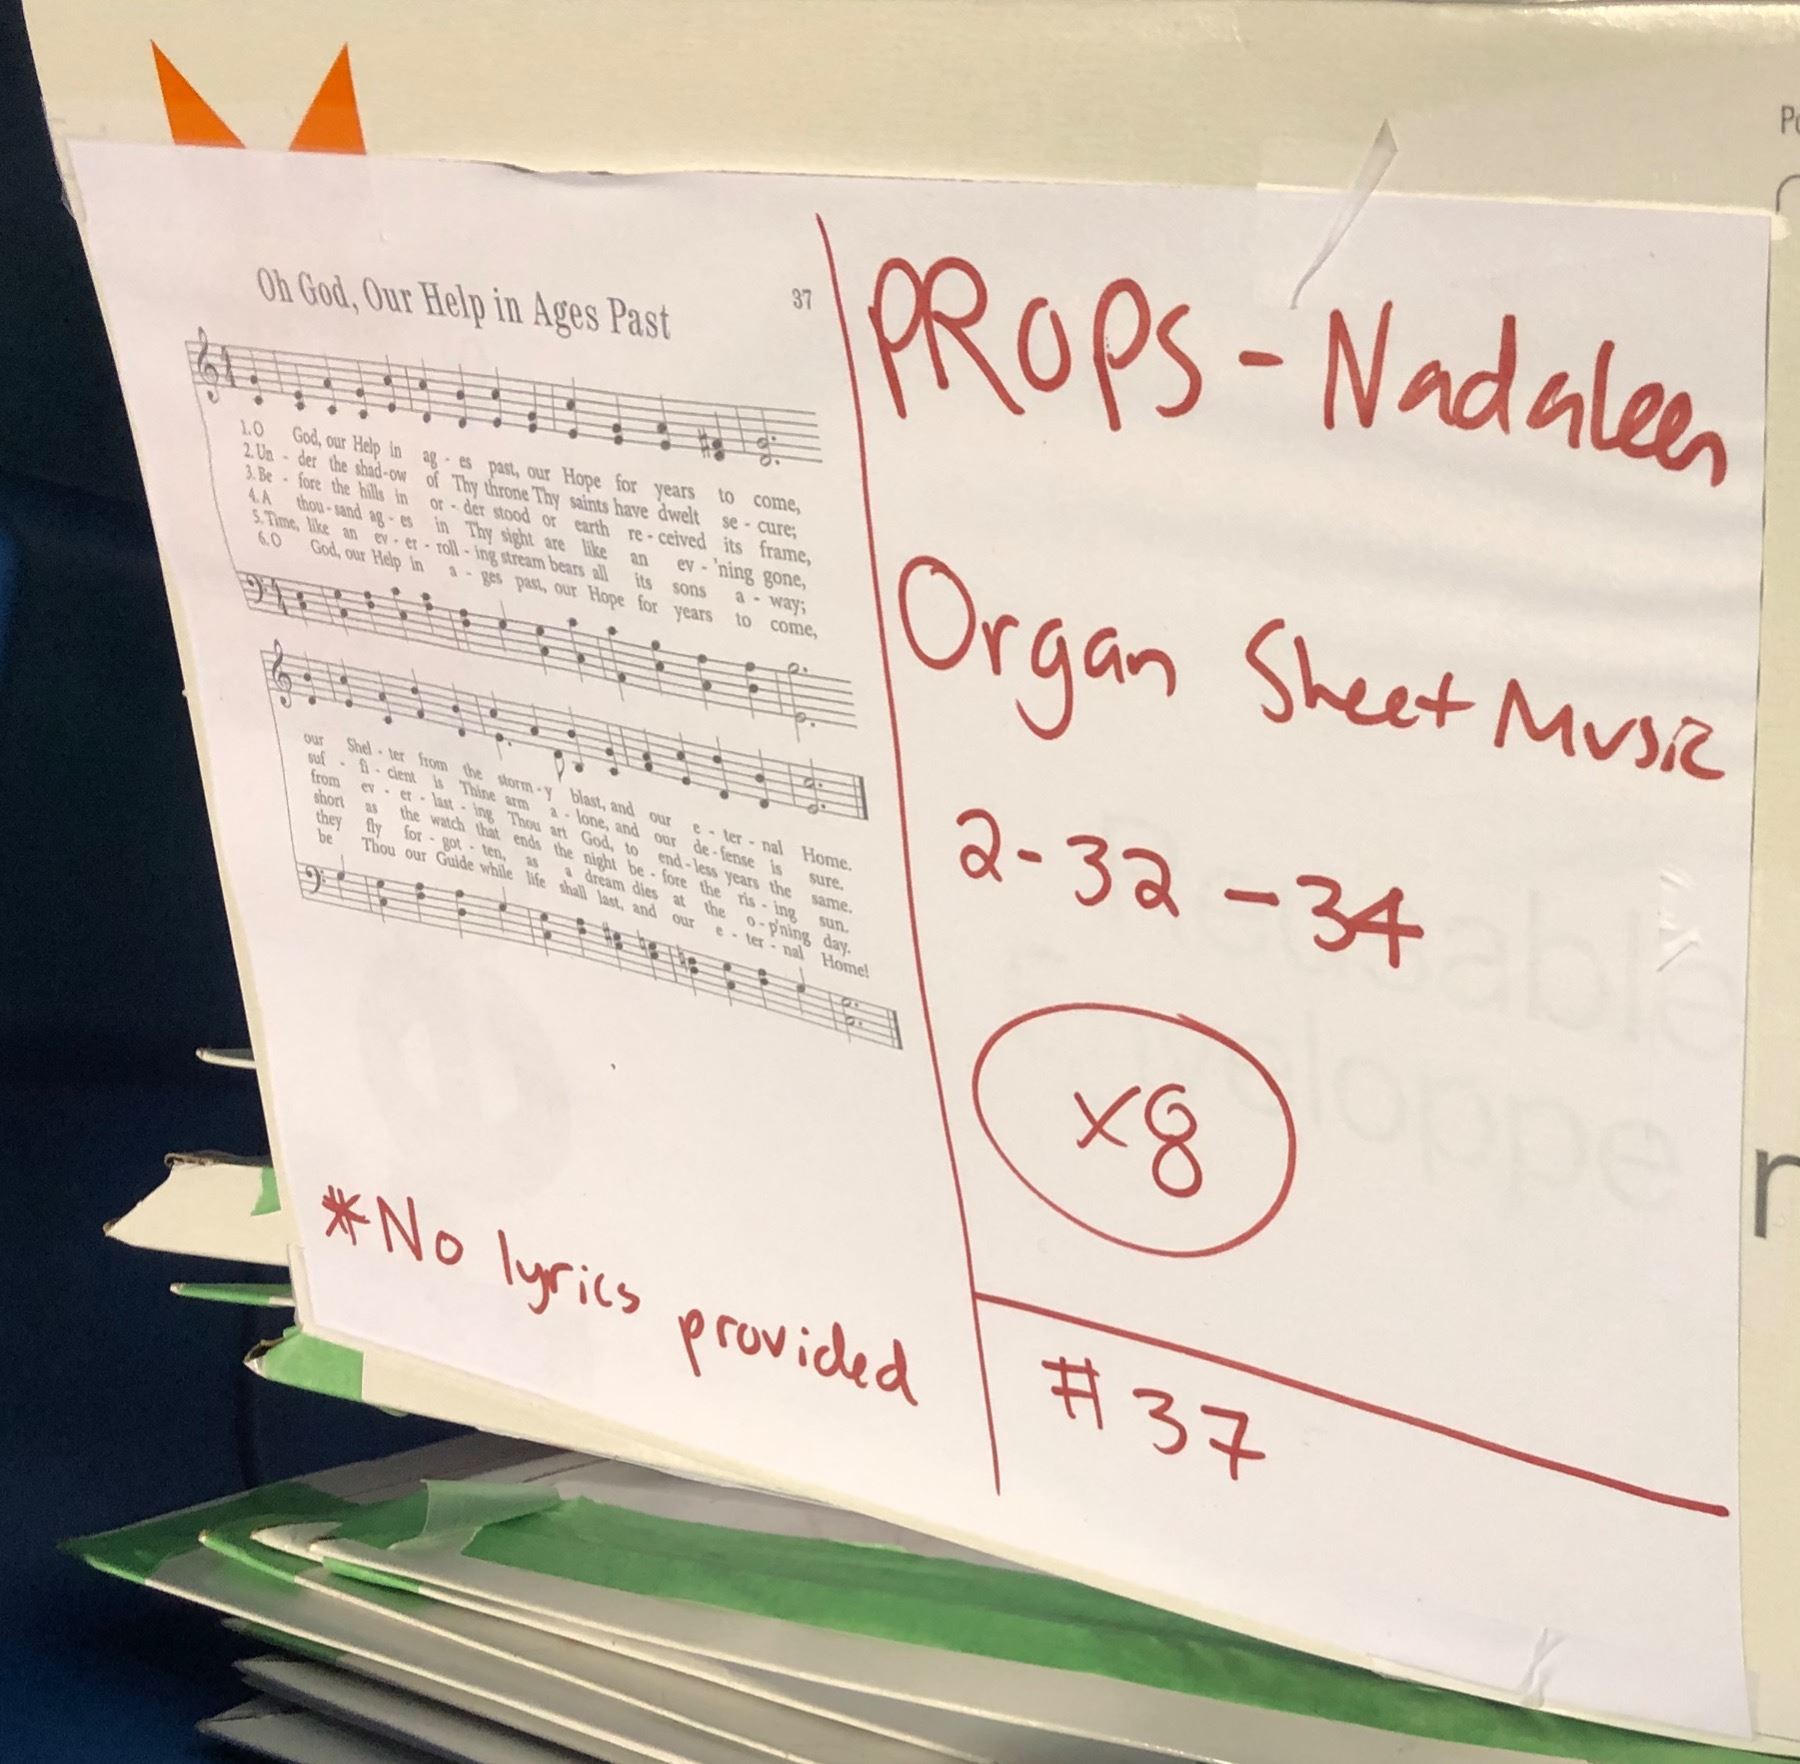 Oh God, Our Help in Ages Past
37
1.O God, our Help in ag - es past, our Hope for years to come,
2.Un - der the shad-ow of Thy throne Thy saints have dwelt se - cure;
3.Be - fore the hills in or - der stood or earth re - ceived its frame,
4.A thou-sand ag - es in Thy sight are like an ev - 'ning gone,
5.Time, like an ev - er - roll - ing stream bears all its sons a - way;
6.O God, our Help in a - ges past, our Hope for years to come,
our Shel - ter from the storm - y blast, and our e - ter - nal Home.
suf - fi - cient is Thine arm a - lone, and our de - fense is sure.
from ev - er - last - ing Thou art God, to end - less years the same.
short as the watch that ends the night be - fore the ris - ing sun.
they fly for - got - ten, as a dream dies at the o - p'ning day.
be Thou our Guide while life shall last, and our e - ter - nal Home!
*No lyrics provided
PROPS - Nadaleen
Organ Sheet Music
2-32-34
x8
#37